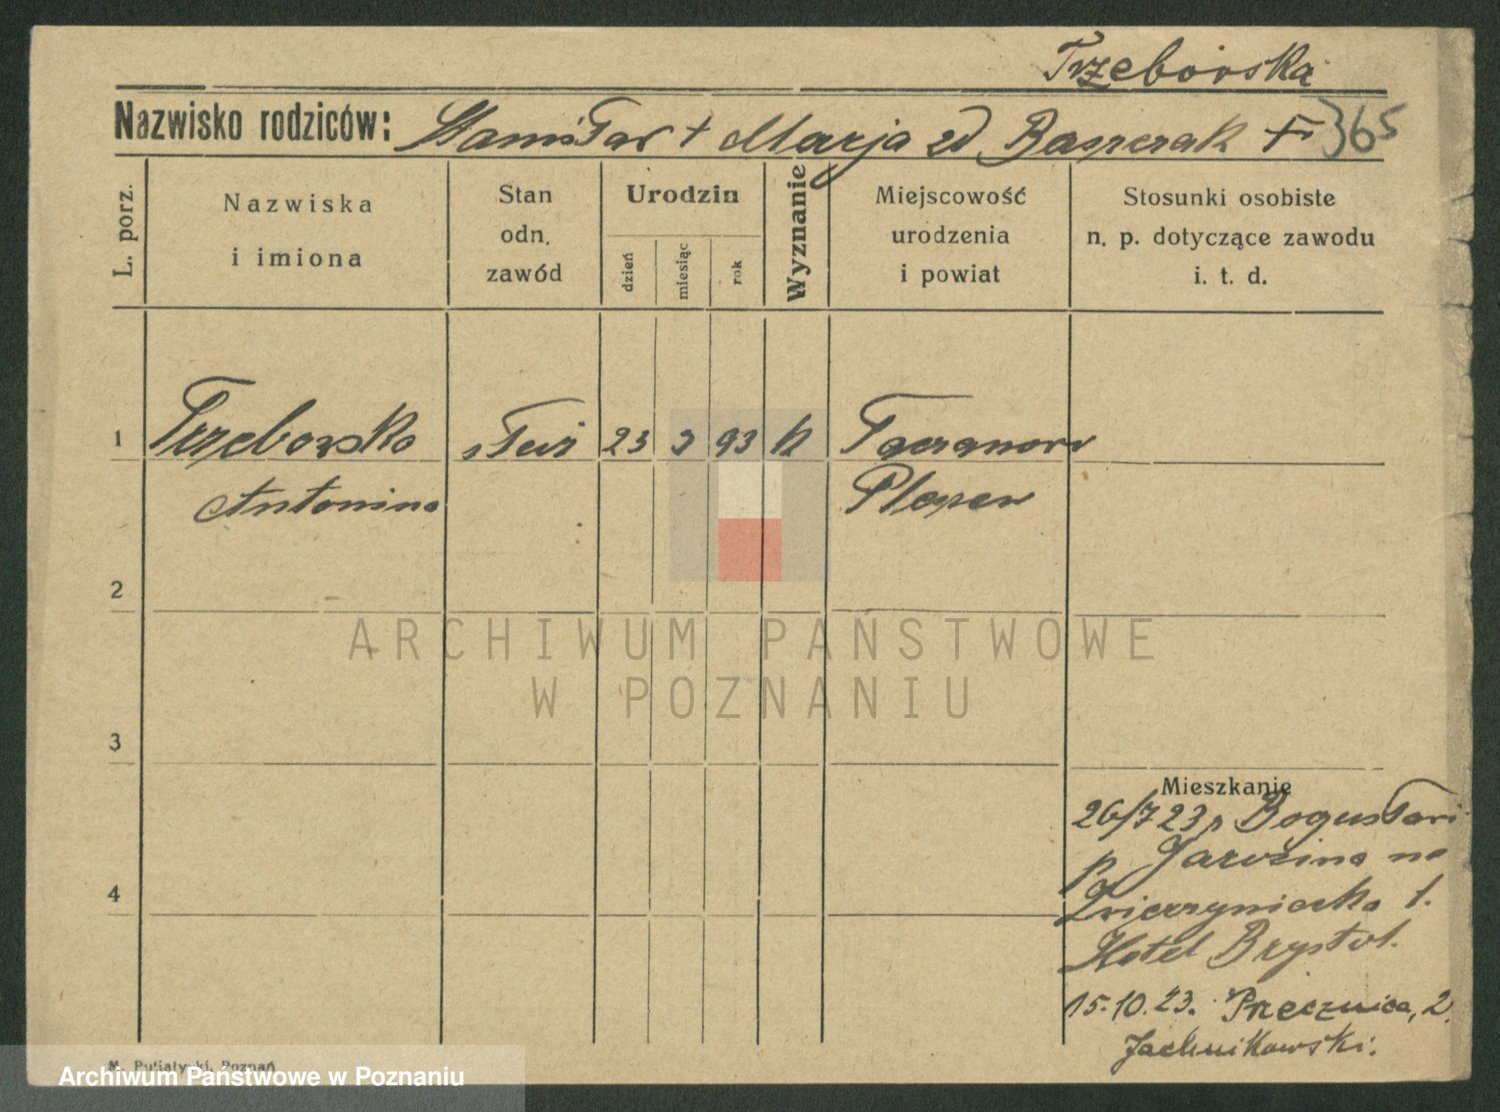 Trzeborska
Nazwisko rodziców: Stanisław + Marja zd Kasprzak + 365
L. porz.
Nazwiska
i imiona
Stan
odn.
zawód
Urodzin
dzień
miesiąc
rok
Wyznanie
Miejscowość
urodzenia
i powiat
Stosunki osobiste
n. p. dotyczące zawodu
i. t. d.
1 Trzeborska służ 23 3 93 k Taczanow
Antonina Pleszew
2
3
4
Mieszkanie
26/7 23 z Bogusławi
p Jarocina na
Zwierzyniecka 1.
Hotel Brystol.
15.10.23. Przecznica, 2
Jachnikowski.
Poznań
Archiwum Państwowe w Poznaniu
ARCHIWUM PAŃSTWOWE
W POZNANIU